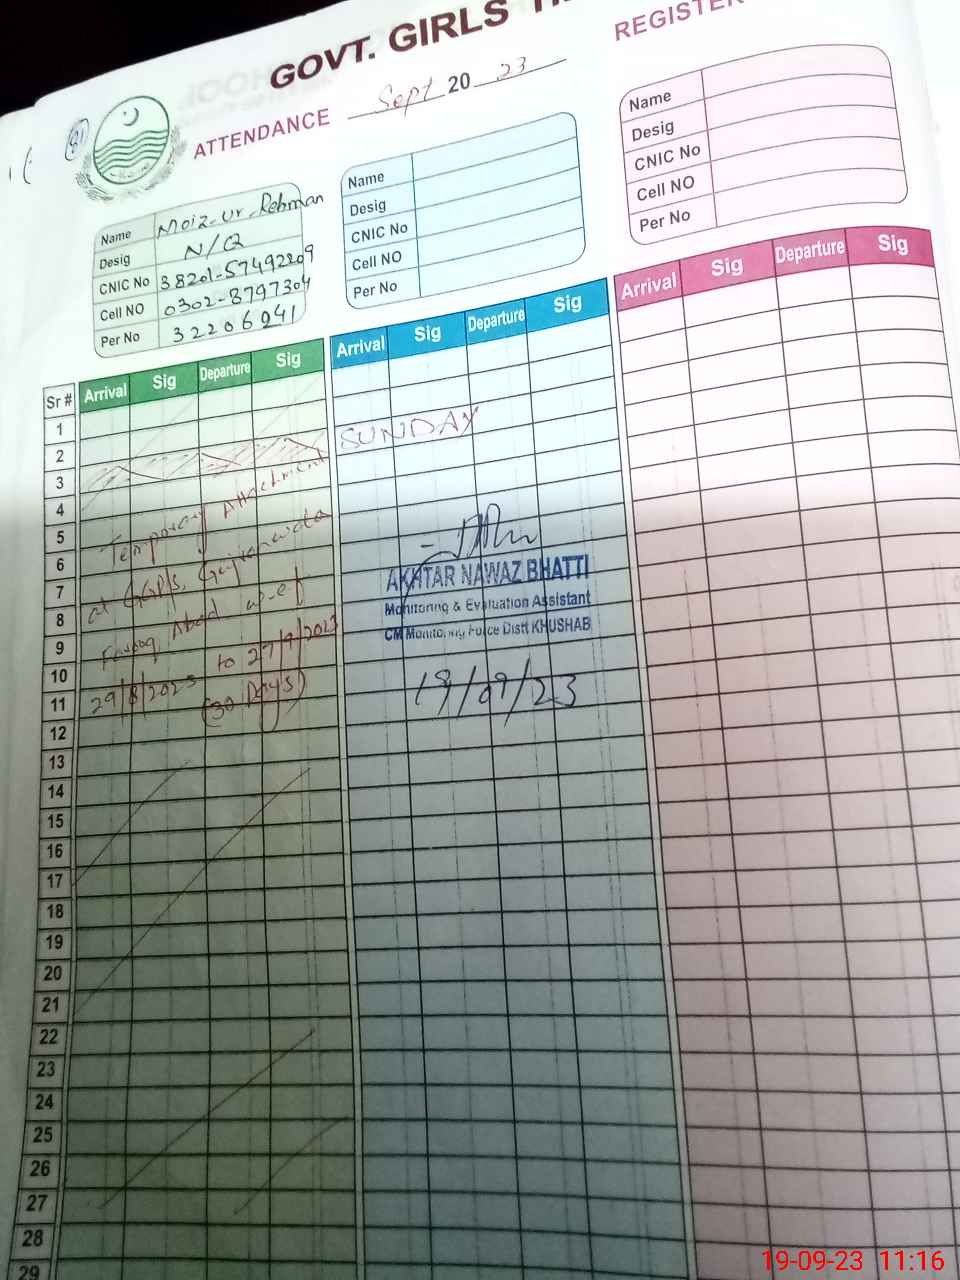 GOVT. GIRLS
REGISTER
ATTENDANCE Sept 20 23
Name Moiz-ur-Rehman
Desig N/Q
CNIC No 38201-57492209
Cell NO 0302-8797304
Per No 32206941
Name
Desig
CNIC No
Cell NO
Per No
Name
Desig
CNIC No
Cell NO
Per No
Sr # Arrival Sig Departure Sig Arrival Sig Departure Sig Arrival Sig Departure Sig
1
2
3 SUNDAY
4
5
6
7
8
9
10
11
12
13
14
15
16
17
18
19
20
21
22
23
24
25
26
27
28
29
Temporary Attachment
at GGPS,
Farooq Abad w.e.f
29/8/2023 to 27/9/2023
(30 Days)
AKHTAR NAWAZ BHATTI
Monitoring & Evaluation Assistant
CM Monitoring Force Distt KHUSHAB
19/09/23
19-09-23 11:16